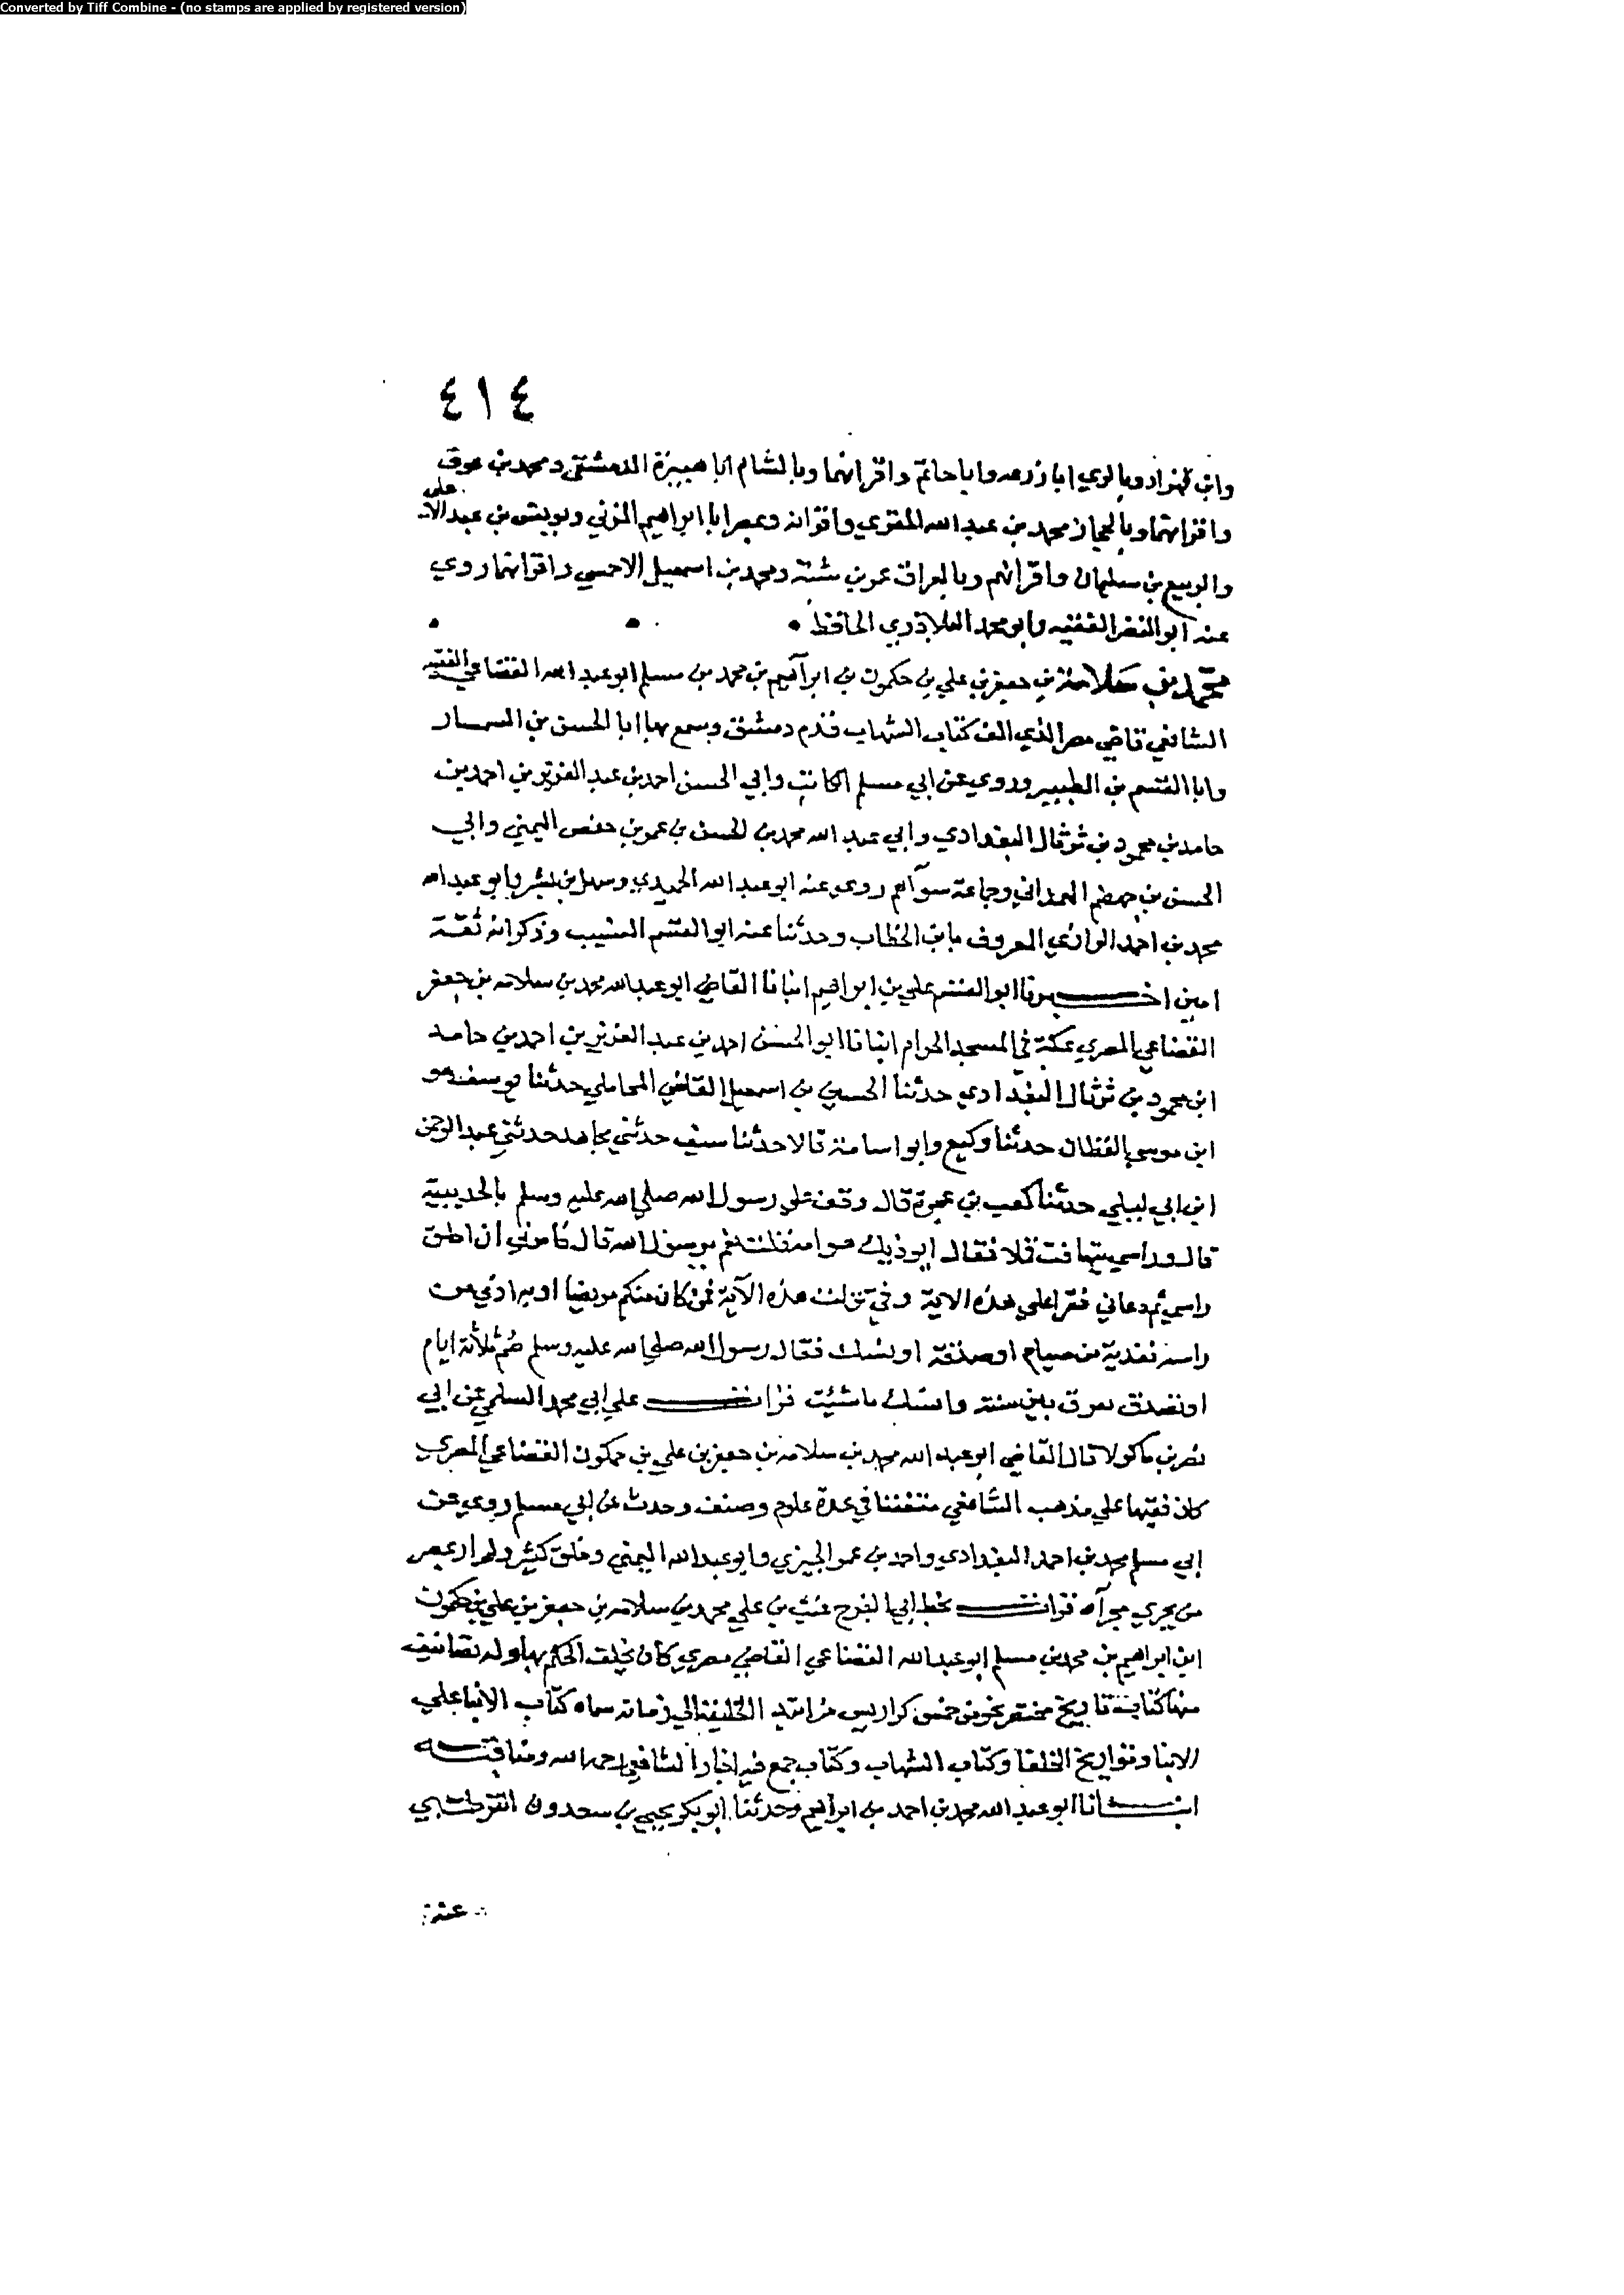 Converted by Tiff Combine - (no stamps are applied by registered version)
٤١٤
وابن قهزاد وبالري ابا زرعه وابا حاتم واقرانهما وبالشام ابا هبيرة الدمشقي ومحمد بن عوف
واقرانهما وبالحجاز محمد بن عبد الله المقري واقرانه وبمصر ابا ابراهيم المزني ويونس بن عبد الاعلى
والربيع بن سليمان واقرانهم وبالعراق عمر بن شبة ومحمد بن اسمعيل الاحمسي واقرانهما روي
عنه ابو النضر الفقيه وابو محمد البلاذري الحافظ
محمد بن سلامة بن جعفر بن علي بن حكمون بن ابراهيم بن محمد بن مسلم ابو عبد الله القضاعي الفقيه
الشافعي قاضي مصر الذي الف كتاب الشهاب قدم دمشق وسمع بها ابا الحسن بن السمسار
وابا القسم بن الطبيز وروي عن ابي مسلم الكاتب وابي الحسن احمد بن عبد العزيز بن احمد بن
حامد بن محمود بن ثرثال البغدادي وابي عبد الله محمد بن الحسن بن عمر بن حفص اليمني وابي
الحسن بن جهضم الهمداني وجماعة سواهم روي عنه ابو عبد الله الحميدي وسهل بن بشر وابو عبد الله
محمد بن احمد الرازي المعروف بابن الخطاب وحدثنا عنه ابو القسم النسيب وذكر انه ثقة
امين اخبرنا ابو القسم علي بن ابراهيم انبانا القاضي ابو عبد الله محمد بن سلامه بن جعفر
القضاعي المصري بمكة في المسجد الحرام انبانا ابو الحسن احمد بن عبد العزيز بن احمد بن حامد
ابن محمود بن ثرثال البغدادي حدثنا الحسين بن اسمعيل القاضي المحاملي حدثنا يوسف هو
ابن موسي القطان حدثنا وكيع وابو اسامة قالا حدثنا سيف حدثني مجاهد حدثني عبد الرحمن
ابن ابي ليلي حدثنا كعب بن عجرة قال وقف علي رسول الله صلي الله عليه وسلم بالحديبية
قال وراسي يتهافت قملا فقال ايوذيك هوامه فقلت نعم يرسول الله قال فامرني ان احلق
راسي ثم دعاني فقرا علي هذه الاية وفي نزلت هذه الآية فمن كان منكم مريضا او به اذي من
راسه ففدية من صيام او صدقة او نسك فقال رسول الله صلي الله عليه وسلم صم ثلاثة ايام
او تصدق بفرق بين ستة وانسك ما شئت قرات علي ابي محمد السلمي عن ابي
نصر بن ماكولا قال القاضي ابو عبد الله محمد بن سلامه بن جعفر بن علي بن حكمون القضاعي المصري
كان فقيها علي مذهب الشافعي متفننا في عدة علوم وصنف وحدث عن ابي مسلم روي عن
ابي مسلم محمد بن احمد البغدادي واحمد بن عمر الجيزي وابو عبد الله اليمني وخلق كثير ولم ار بمصر
من يجري مجراه قرات بخط ابي الفرج غيث بن علي محمد بن سلامه بن جعفر بن علي بن حكمون
ابن ابراهيم بن محمد بن مسلم ابو عبد الله القضاعي القاضي مصري كان يخلف الحكم بها وله تصانيف
منها كتابه تاريخ مختصر نحو من خمس كراريس من ابتدا الخليقة الي زمانه سماه كتاب الانبا علي
الانبا وتواريخ الخلفا وكتاب الشهاب وكتاب جمع فيه اخبار الشافعي رحمه الله ومناقبه
انبانا ابو عبد الله محمد بن احمد بن ابراهيم وحدثنا ابو بكر يحيي بن سعدون القرطبي
عنه